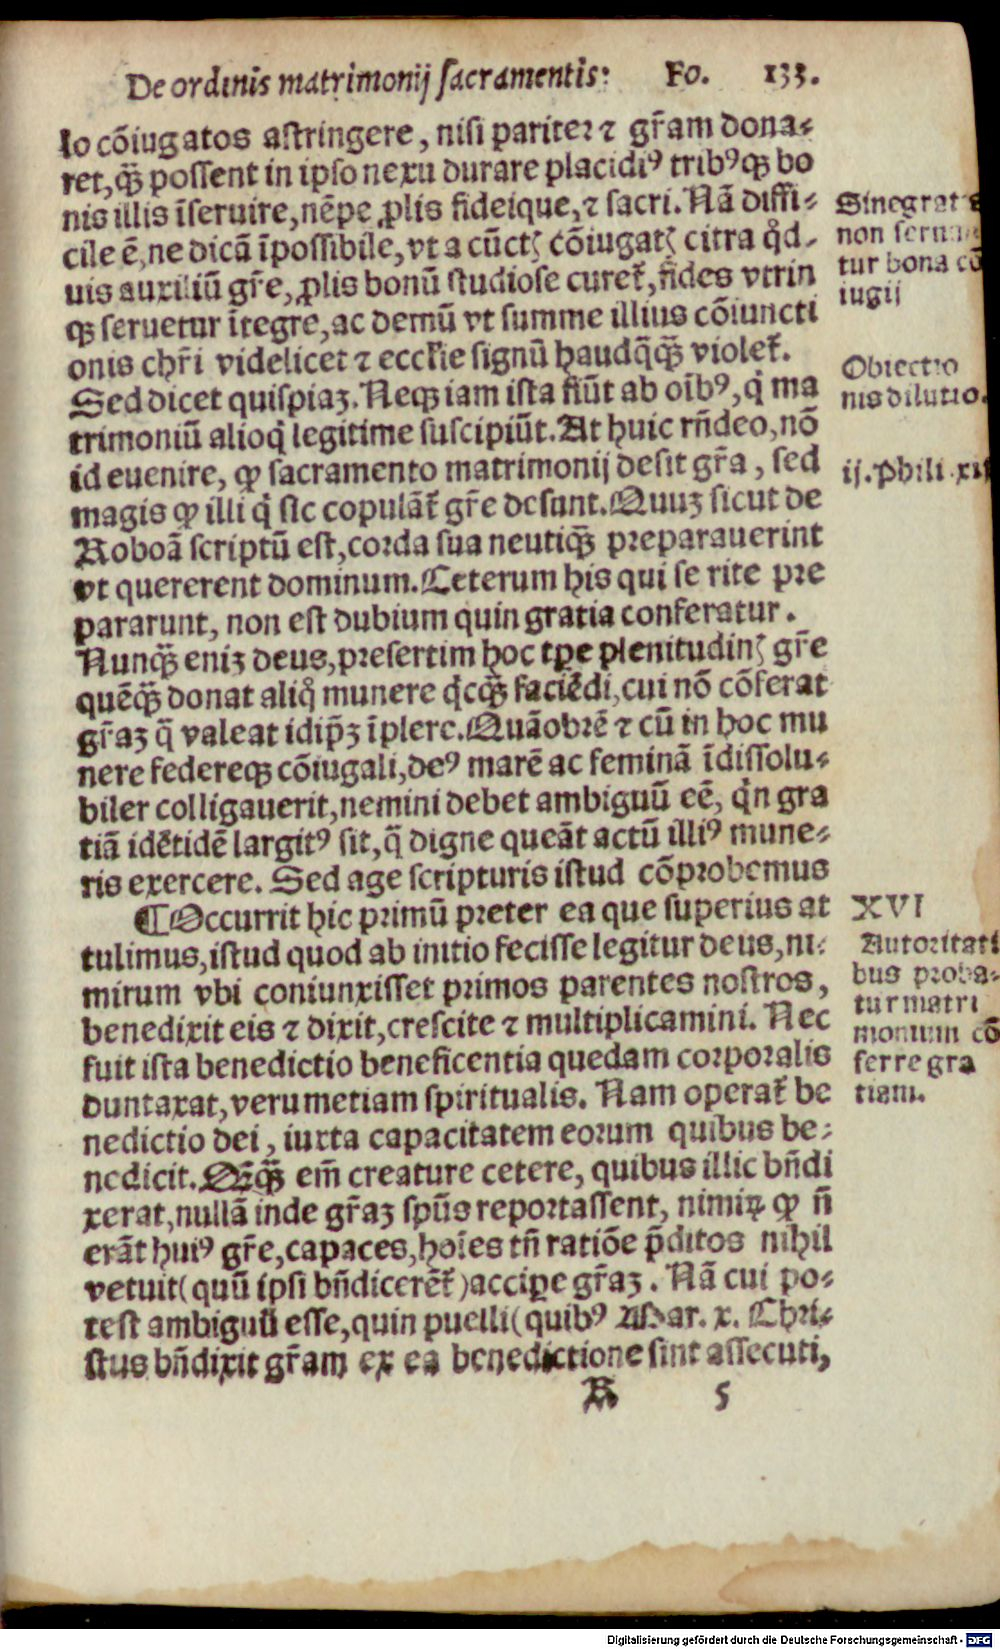 De ordinis matrimonij sacramentis: Fo. 133.
lo cõiugatos astringere, nisi pariteꝛ ⁊ gr̃am dona⸗
ret, qꝫ̃ possent in ipso nexu durare placidiꝰ tribꝰqꝫ bo
nis illis ĩseruire, nẽpe ꝓlis fideique, ⁊ sacri. Nã diffi⸗
cile ẽ, ne dicã ĩpossibile, vt a cũctꝭ cõiugatꝭ citra qd̊⸗
uis auxiliũ gr̃e, ꝓlis bonũ studiose curet᷑, fides vtrin
qꝫ seruetur ĩtegre, ac demũ vt summe illius cõiuncti
onis chr̃i videlicet ⁊ eccl̃ie signũ haudq̃qꝫ̃ violet᷑.
Sed dicet quispiaꝫ. Neqꝫ iam ista fiũt ab oĩbꝰ, qͥ ma
trimoniũ alioqͥ legitime suscipiũt. At huic rñdeo, nõ
id euenire, ꝙ sacramento matrimonij desit gr̃a, sed
magis ꝙ illi qͥ sic copulãt᷑ gr̃e desunt. Quuꝫ sicut de
Roboã scriptũ est, corda sua neutiqꝫ̃ preparauerint
vt quererent dominum. Ceterum his qui se rite pre
pararunt, non est dubium quin gratia conferatur.
Nunqꝫ̃ eniꝫ deus, presertim hoc tꝑe plenitudinꝭ gr̃e
quẽqꝫ̃ donat aliqͦ munere qͥcqꝫ̃ faciẽdi, cui nõ cõferat
gr̃aꝫ q̃ valeat idip̃ꝫ ĩplere. Quãobrẽ ⁊ cũ in hoc mu
nere federeqꝫ cõiugali, deꝰ marẽ ac feminã ĩdissolu⸗
biler colligauerit, nemini debet ambiguũ eẽ, qͥn gra
tiã idẽtidẽ largitꝰ sit, q̃ digne queãt actũ illiꝰ mune⸗
ris exercere. Sed age scripturis istud cõprobemus
¶Occurrit hic primũ preter ea que superius at
tulimus, istud quod ab initio fecisse legitur deus, ni⸗
mirum vbi coniunxisset primos parentes nostros,
benedixit eis ⁊ dixit, crescite ⁊ multiplicamini. Nec
fuit ista benedictio beneficentia quedam corporalis
duntaxat, verumetiam spiritualis. Nam operat᷑ be
nedictio dei, iuxta capacitatem eorum quibus be⸗
nedicit. Qꝫqꝫ̃ em̃ creature cetere, quibus illic bñdi
xerat, nullã inde gr̃aꝫ spũs reportassent, nimiꝝ ꝙ ñ
erãt huiꝰ gr̃e, capaces, hoĩes tñ ratiõe p̃ditos nihil
vetuit (quũ ipsi bñdicerẽt᷑) acciꝑe gr̃aꝫ. Nã cui po⸗
test ambiguũ esse, quin puelli (quibꝰ Mar. x. Chri⸗
stus bñdixit gr̃am ex ea benedictione sint assecuti,
R 5
Sine grat
non seru
tur bona cõ
iugij
Obiectio
nis dilutio.
ij. Phili. xij
XVI
Autoritati
bus proba⸗
tur matri
monium cõ
ferre gra
tiam.
Digitalisierung gefördert durch die Deutsche Forschungsgemeinschaft - DFG